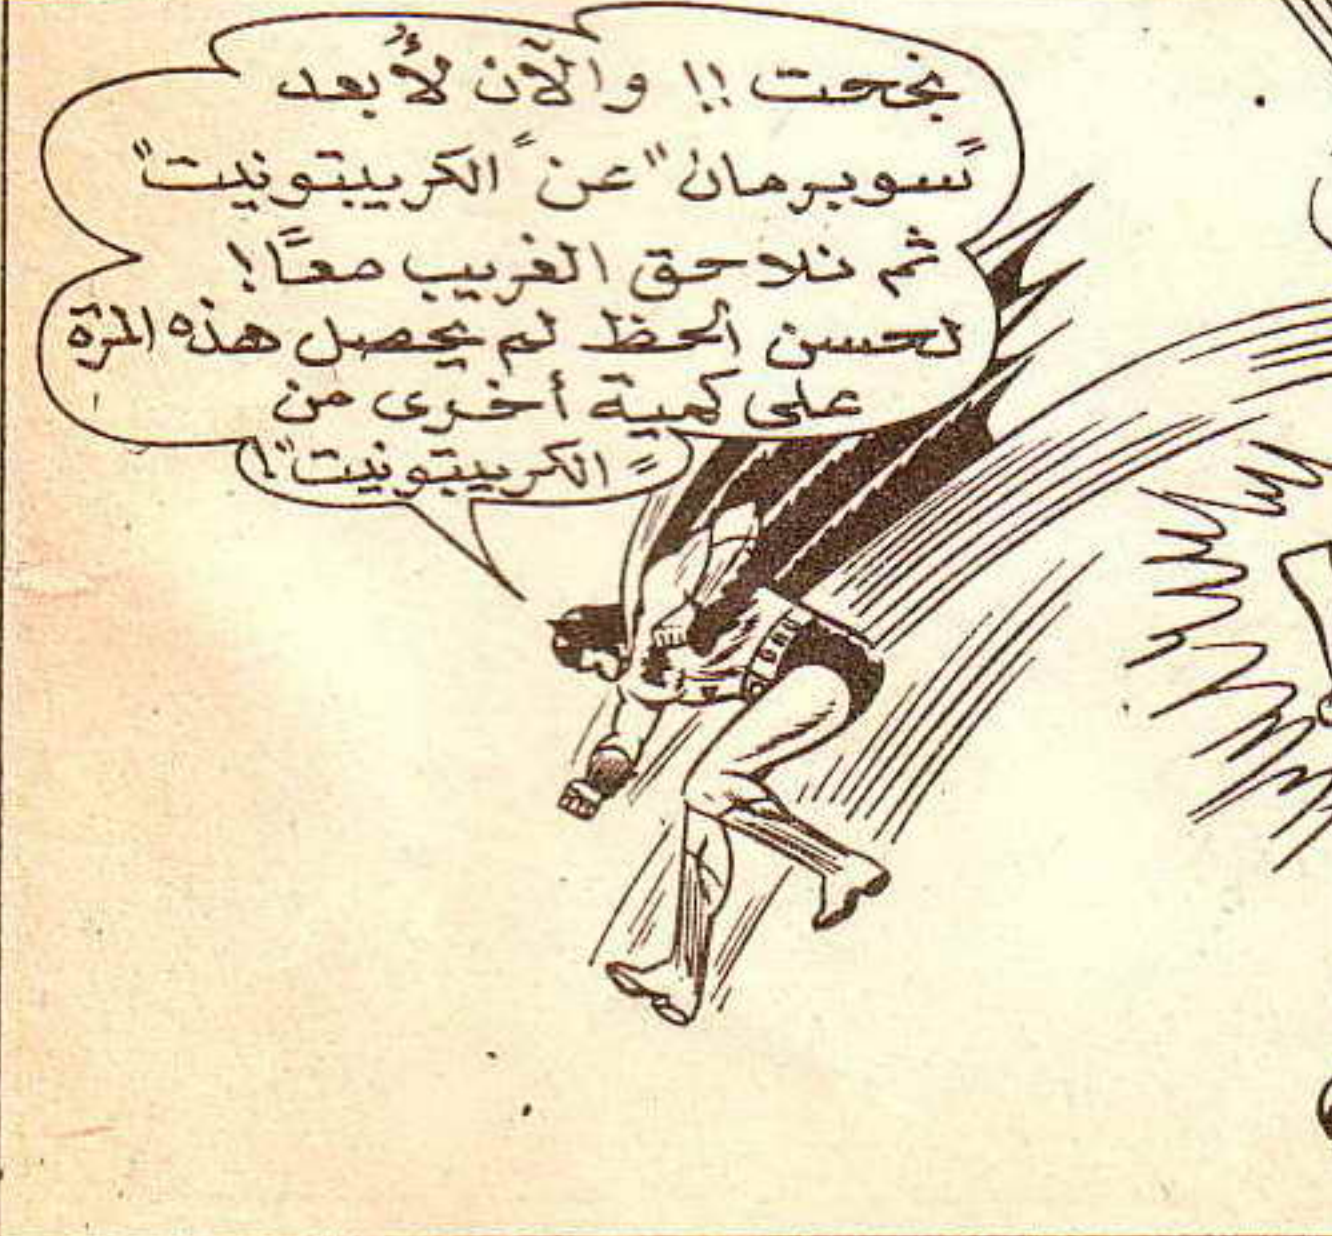 نجحت !! والآن لأُبعد
"سوبرمان" عن "الكريبتونيت"
ثم نلاحق الغريب معاً !
لحسن الحظ لم يحصل هذه المرّة
على كمية أخرى من
"الكريبتونيت" !